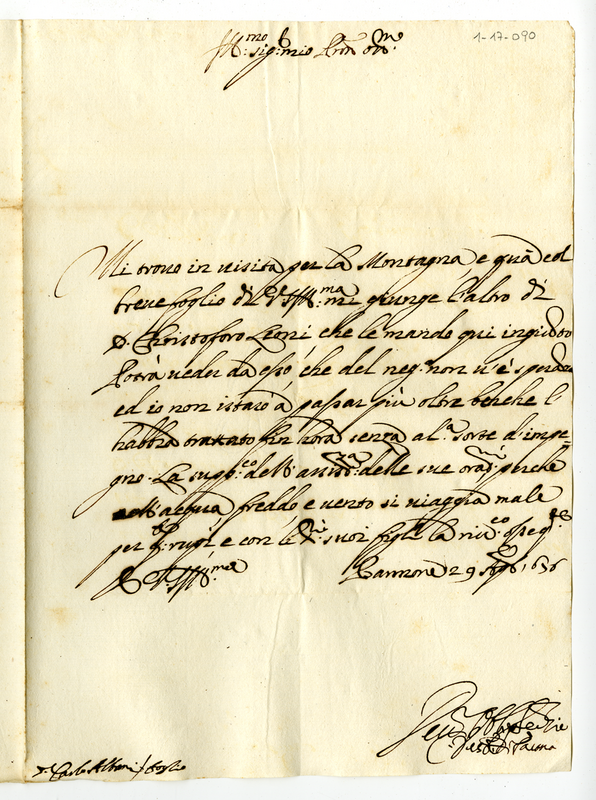 1-17-090
Ill:mo sig:r mio Pron oss:mo
Mi trovo in visita per la Montagna, e quà col
breve foglio di V.S. Ill:ma mi giunge l'altro di
D. Christoforo Leoni, che le mando qui ingiunto
Potrà veder da esso, che del neg.o non v'è speranza
ed io non istarò a passar più oltre benche l'
habbia trattato fin hora senza al.a sorte d'impe-
gno. La supp.co dell' assist:za delle sue oraz.ni perche
dell'acqua freddo e vento si viaggia male
per q. e con li suoi figli la riv.co
D V.S. Ill:ma 29 Ag:to
D. Carlo Alberi